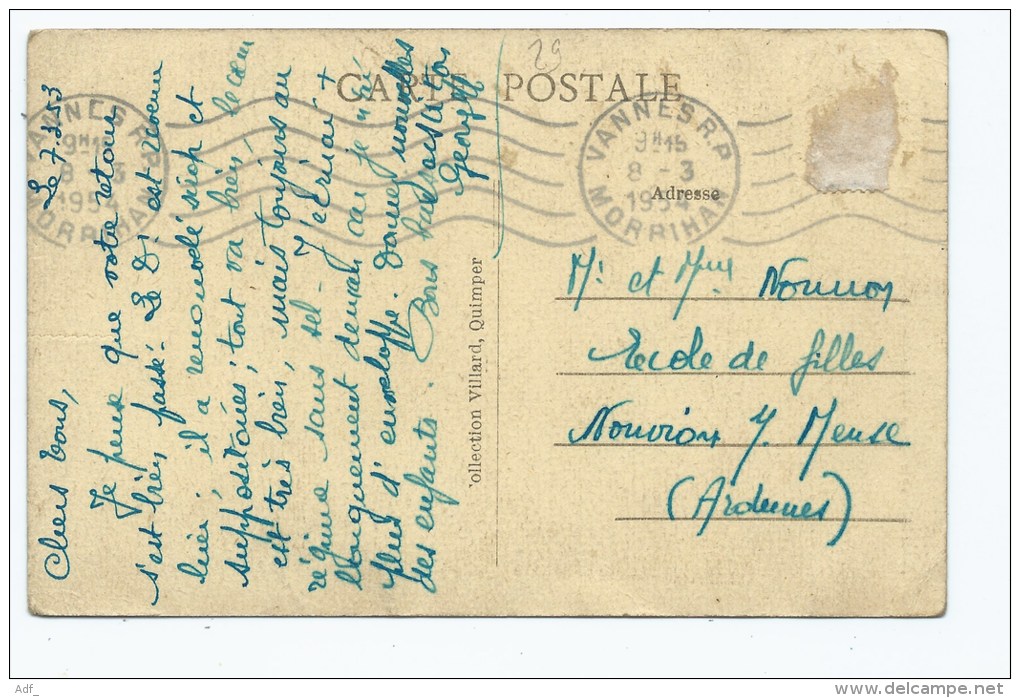 CARTE POSTALE
29
Le 7.3.53
Chers tous,
Je pense que votre retour
s'est bien passé. Le Dr est revenu
hier, il a renouvelé sirop et
suppositoires; tout va bien, le cœur
est très bien, mais toujours au
régime sans sel - J'écrirai +
longuement demain car je n'ai
plus d'enveloppe. Donnez nouvelles
des enfants. Bons baisers à tous
Georges
VANNES R.P.
9H15
8 - 3
MORBIHAN
VANNES R.P.
9H15
8 - 3
MORBIHAN
Collection Villard, Quimper
Adresse
Mr et Mme
Ecole de filles
Nouvion s/ Meuse
(Ardennes)
Adf_
www.delcampe.net